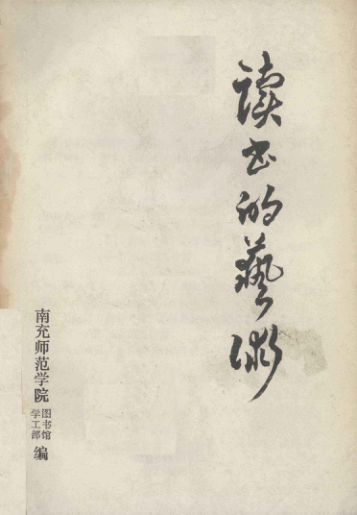 读书的藝術
南充师范学院
图书馆
学工部
编